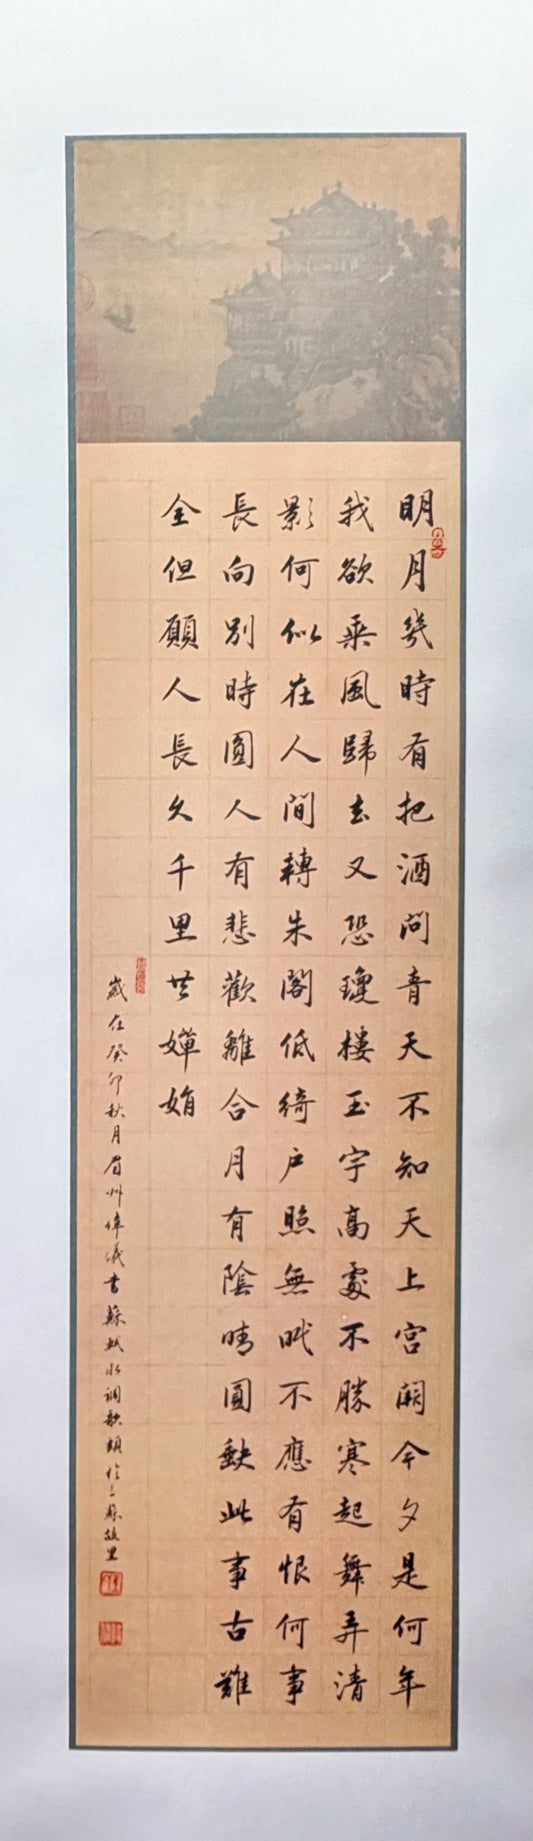 明月幾時有把酒問青天不知天上宮闕今夕是何年
我欲乘風歸去又恐瓊樓玉宇高處不勝寒起舞弄清
影何似在人間轉朱閣低綺户照無眠不應有恨何事
長向別時圓人有悲歡離合月有陰晴圓缺此事古難
全但願人長久千里共嬋娟
歲在癸卯秋月眉州偉儀書蘇軾水调歌頭於三蘇故里